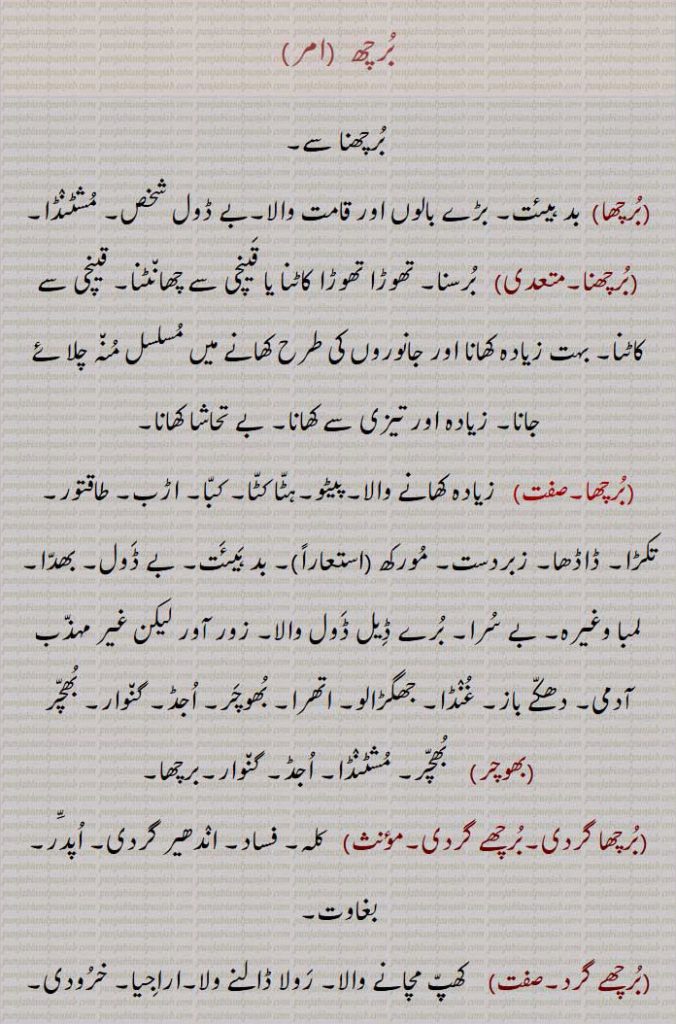 بُرچھ (امر)
بُرچھنا سے۔
(بُرچھا) بد ہیئت۔ بڑے بالوں اور قامت والا۔ بے ڈول شخص۔ مُشٹنْڈا۔
(بُرچھنا۔متعدی) بُرسنا۔ تھوڑا تھوڑا کاٹنا یا قَینچی سے چھانْٹنا۔ قینچی سے
کاٹنا۔ بہت زیادہ کھانا اور جانوروں کی طرح کھانے میں مُسلسل مُنّہ چلائے
جانا۔ زیادہ اور تیزی سے کھانا۔ بے تحاشا کھانا۔
(بُرچھا۔صفت) زیادہ کھانے والا۔پیٹو۔ہٹّا کٹّا۔ کبّا۔ اڑب۔ طاقتور۔
تکڑا۔ ڈاڈھا۔ زبردست۔ مُورکھ (استعاراً)۔ بد ہَیئَت۔ بے ڈَول۔ بھدّا۔
لمبا وغیرہ۔ بے سُرا۔ بُرے ڈِیل ڈَول والا۔ زور آور لیکن غیر مہذّب
آدمی۔ دھکّے باز۔ غُنْڈا۔ جھگڑالو۔ اتھرا۔ بُھوچَر۔ اُجڈ۔ گنّوار۔ بُھچّر
(بھوچر) بُھچّر۔ مُشٹنْڈا۔ اُجڈ۔ گنّوار۔برچھا۔
(بُرچھا گردی۔بُرچھے گردی۔مؤنث) کلہ۔ فساد۔ انْدھیر گردی۔ اُپدِّر۔
بغاوت۔
(بُرچھے گرد۔صفت) کھپّ مچانے والا۔ رَولا ڈالنے ولا۔اراجیا۔ خرُودی۔